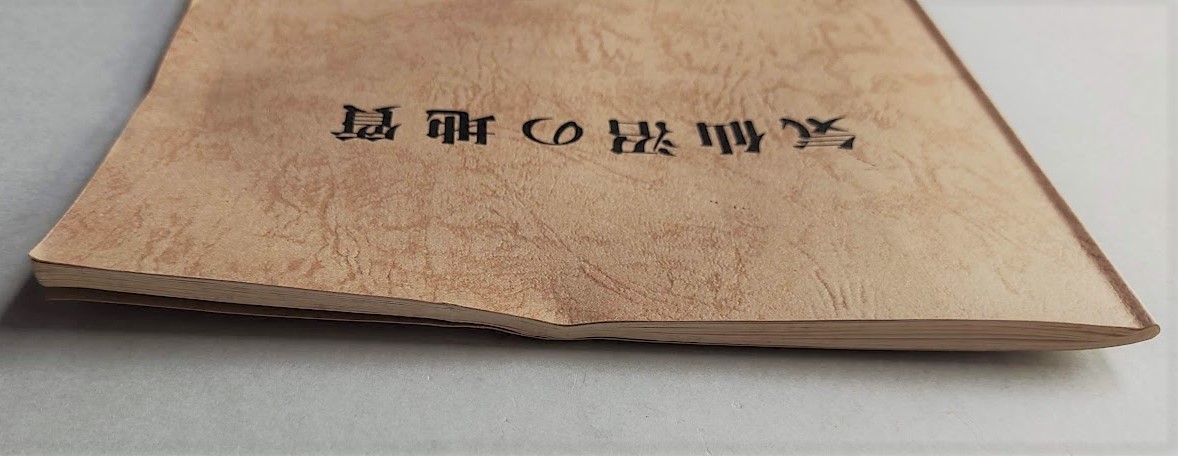 気仙沼の地質